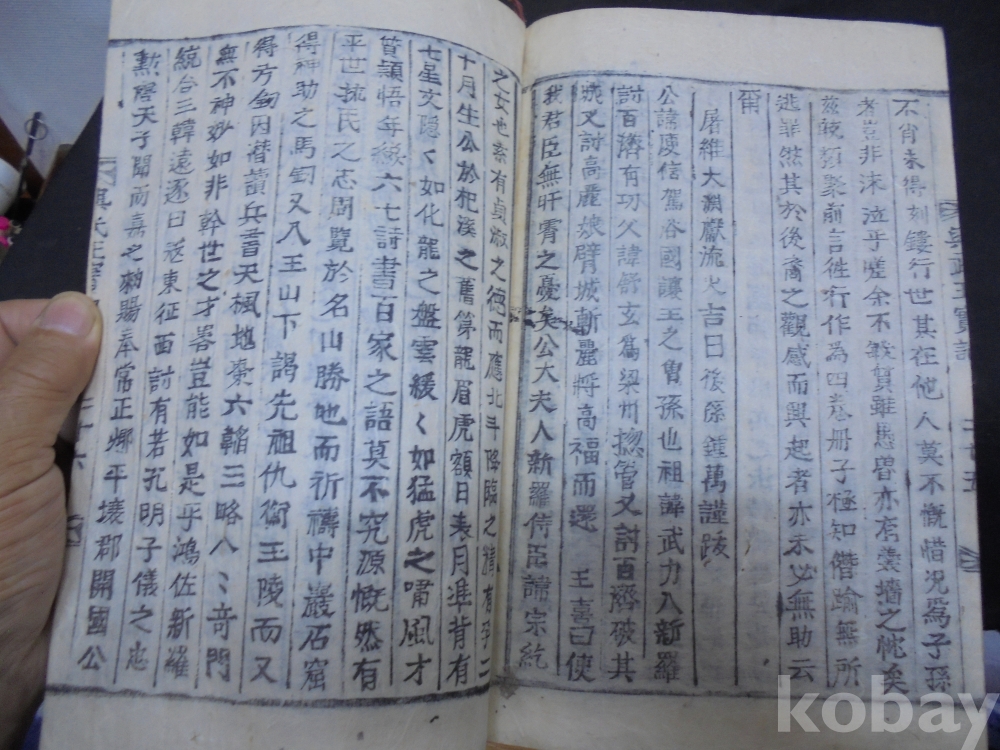 不肖未得刻鏤行世其在他人莫不慨惜况爲子孫
者豈非沫泣乎嗟余不敏質雖愚魯亦有羹墻之忱矣
玆敢類聚前言徃行作爲四卷册子極知僭踰無所
逃罪然其於後裔之觀感而興起者亦未必無助云
爾
屠維大淵獻流火吉日後孫鍾萬謹跋
公諱庾信駕洛國讓王之曾孫也祖諱武力入新羅
討百濟有功久諱舒玄爲梁州摠管又討百濟破其
城又討高麗娘臂城斬麗將高福而還 王喜曰使
我君臣無旰宵之憂矣公大夫人新羅侍臣諱宗統
之女也素有貞淑之德而應北斗降臨之精有孕二
十月生公於杞溪之舊第龍眉虎額日表月準背有
七星文隱〻如化龍之盤雲緩〻如猛虎之嘯風才
質穎悟年纔六七詩書百家之語莫不究源慨然有
平世扶民之志周覽於名山勝地而祈禱中巖石窟
得神助之馬釰又入王山下謁先祖仇衡王陵而又
得方釰因潛讀兵書天楓地藁六韜三略八〻奇門
無不神妙如非幹世之才器豈能如是乎鴻佐新羅
統合三韓遠逐日冦東征西討有若孔明子儀之忠
勲唐天子聞而嘉之勑賜奉常正卿平壤郡開國公
二十五
二十六
kobay